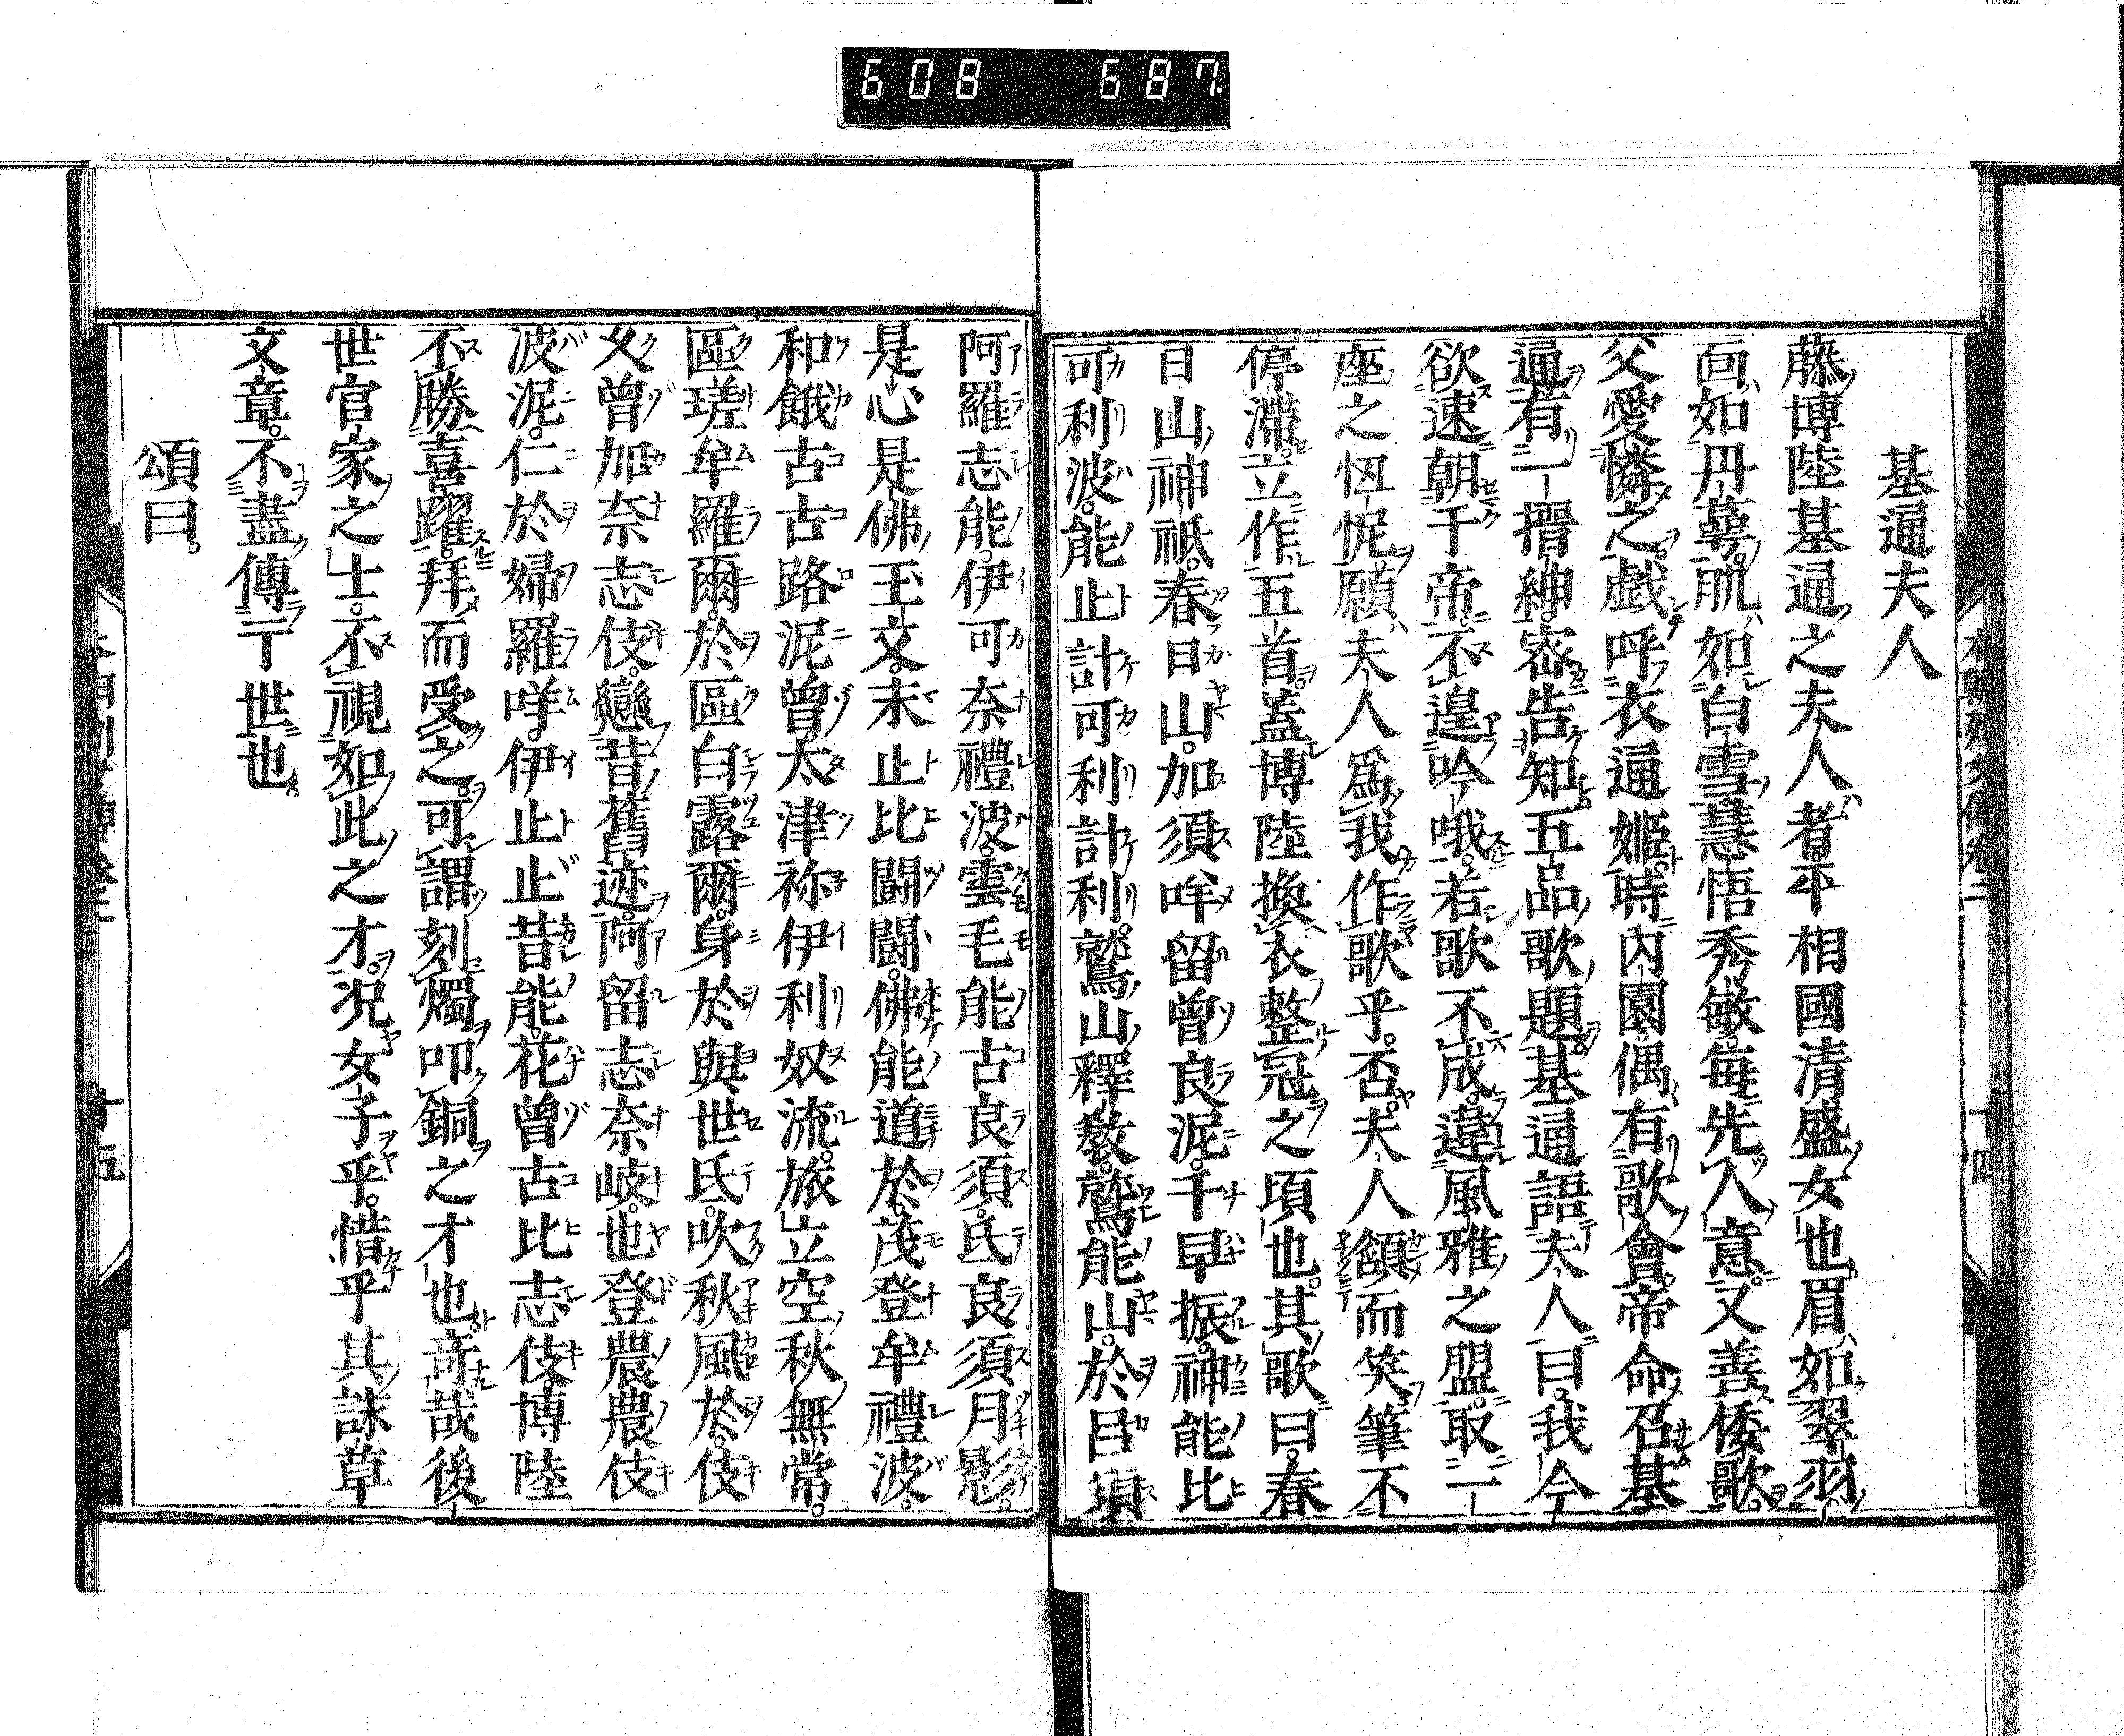 608 687.
本朝列女傳卷二 十四
基通夫人
藤博陸基通之夫人者平相國清盛女也。眉如翠羽。
面如丹蕚。肌如白雪。慧悟秀敏。每先人意。又善倭歌。
父愛憐之。戯呼衣通姫。時內園偶有歌會。帝命召基
通。有一搢紳。密告知五品歌題。基通語夫人曰。我今
欲速朝于帝。不遑吟哦。若歌不成。違風雅之盟。取一
座之忸怩。願夫人爲我作歌乎。否。夫人頷而笑。筆不
停滯。立作五首。蓋博陸換衣整冠之頃也。其歌曰。春
日山神祇。春日山。加須哞留曾良泥。千早振。神能比
可利波。能止計可利計利。鷲山釋敎。鷲能山。於呂須
阿羅志能。伊可奈禮波。雲毛能古良須。氐良須月影。
是心是佛。玉文。末止比闘闘。佛能道於。茂登牟禮波。
和餓古古路泥曾。太津祢伊利奴流。旅立空秋無常。
區瑳牟羅爾。於區白露爾。身於與世氐。吹秋風於。伎
久曾加奈志伎。戀昔舊迹。阿留志奈岐。也登農農伎
波泥。仁於婦羅咩。伊止止昔能。花曾古比志伎。博陸
不勝喜躍。拜而受之。可謂刻燭叩銅之才也。奇哉後
世官家之士。不視如此之才。況女子乎。惜乎其詠草
文章。不盡傳于世也。
頌曰。
十五